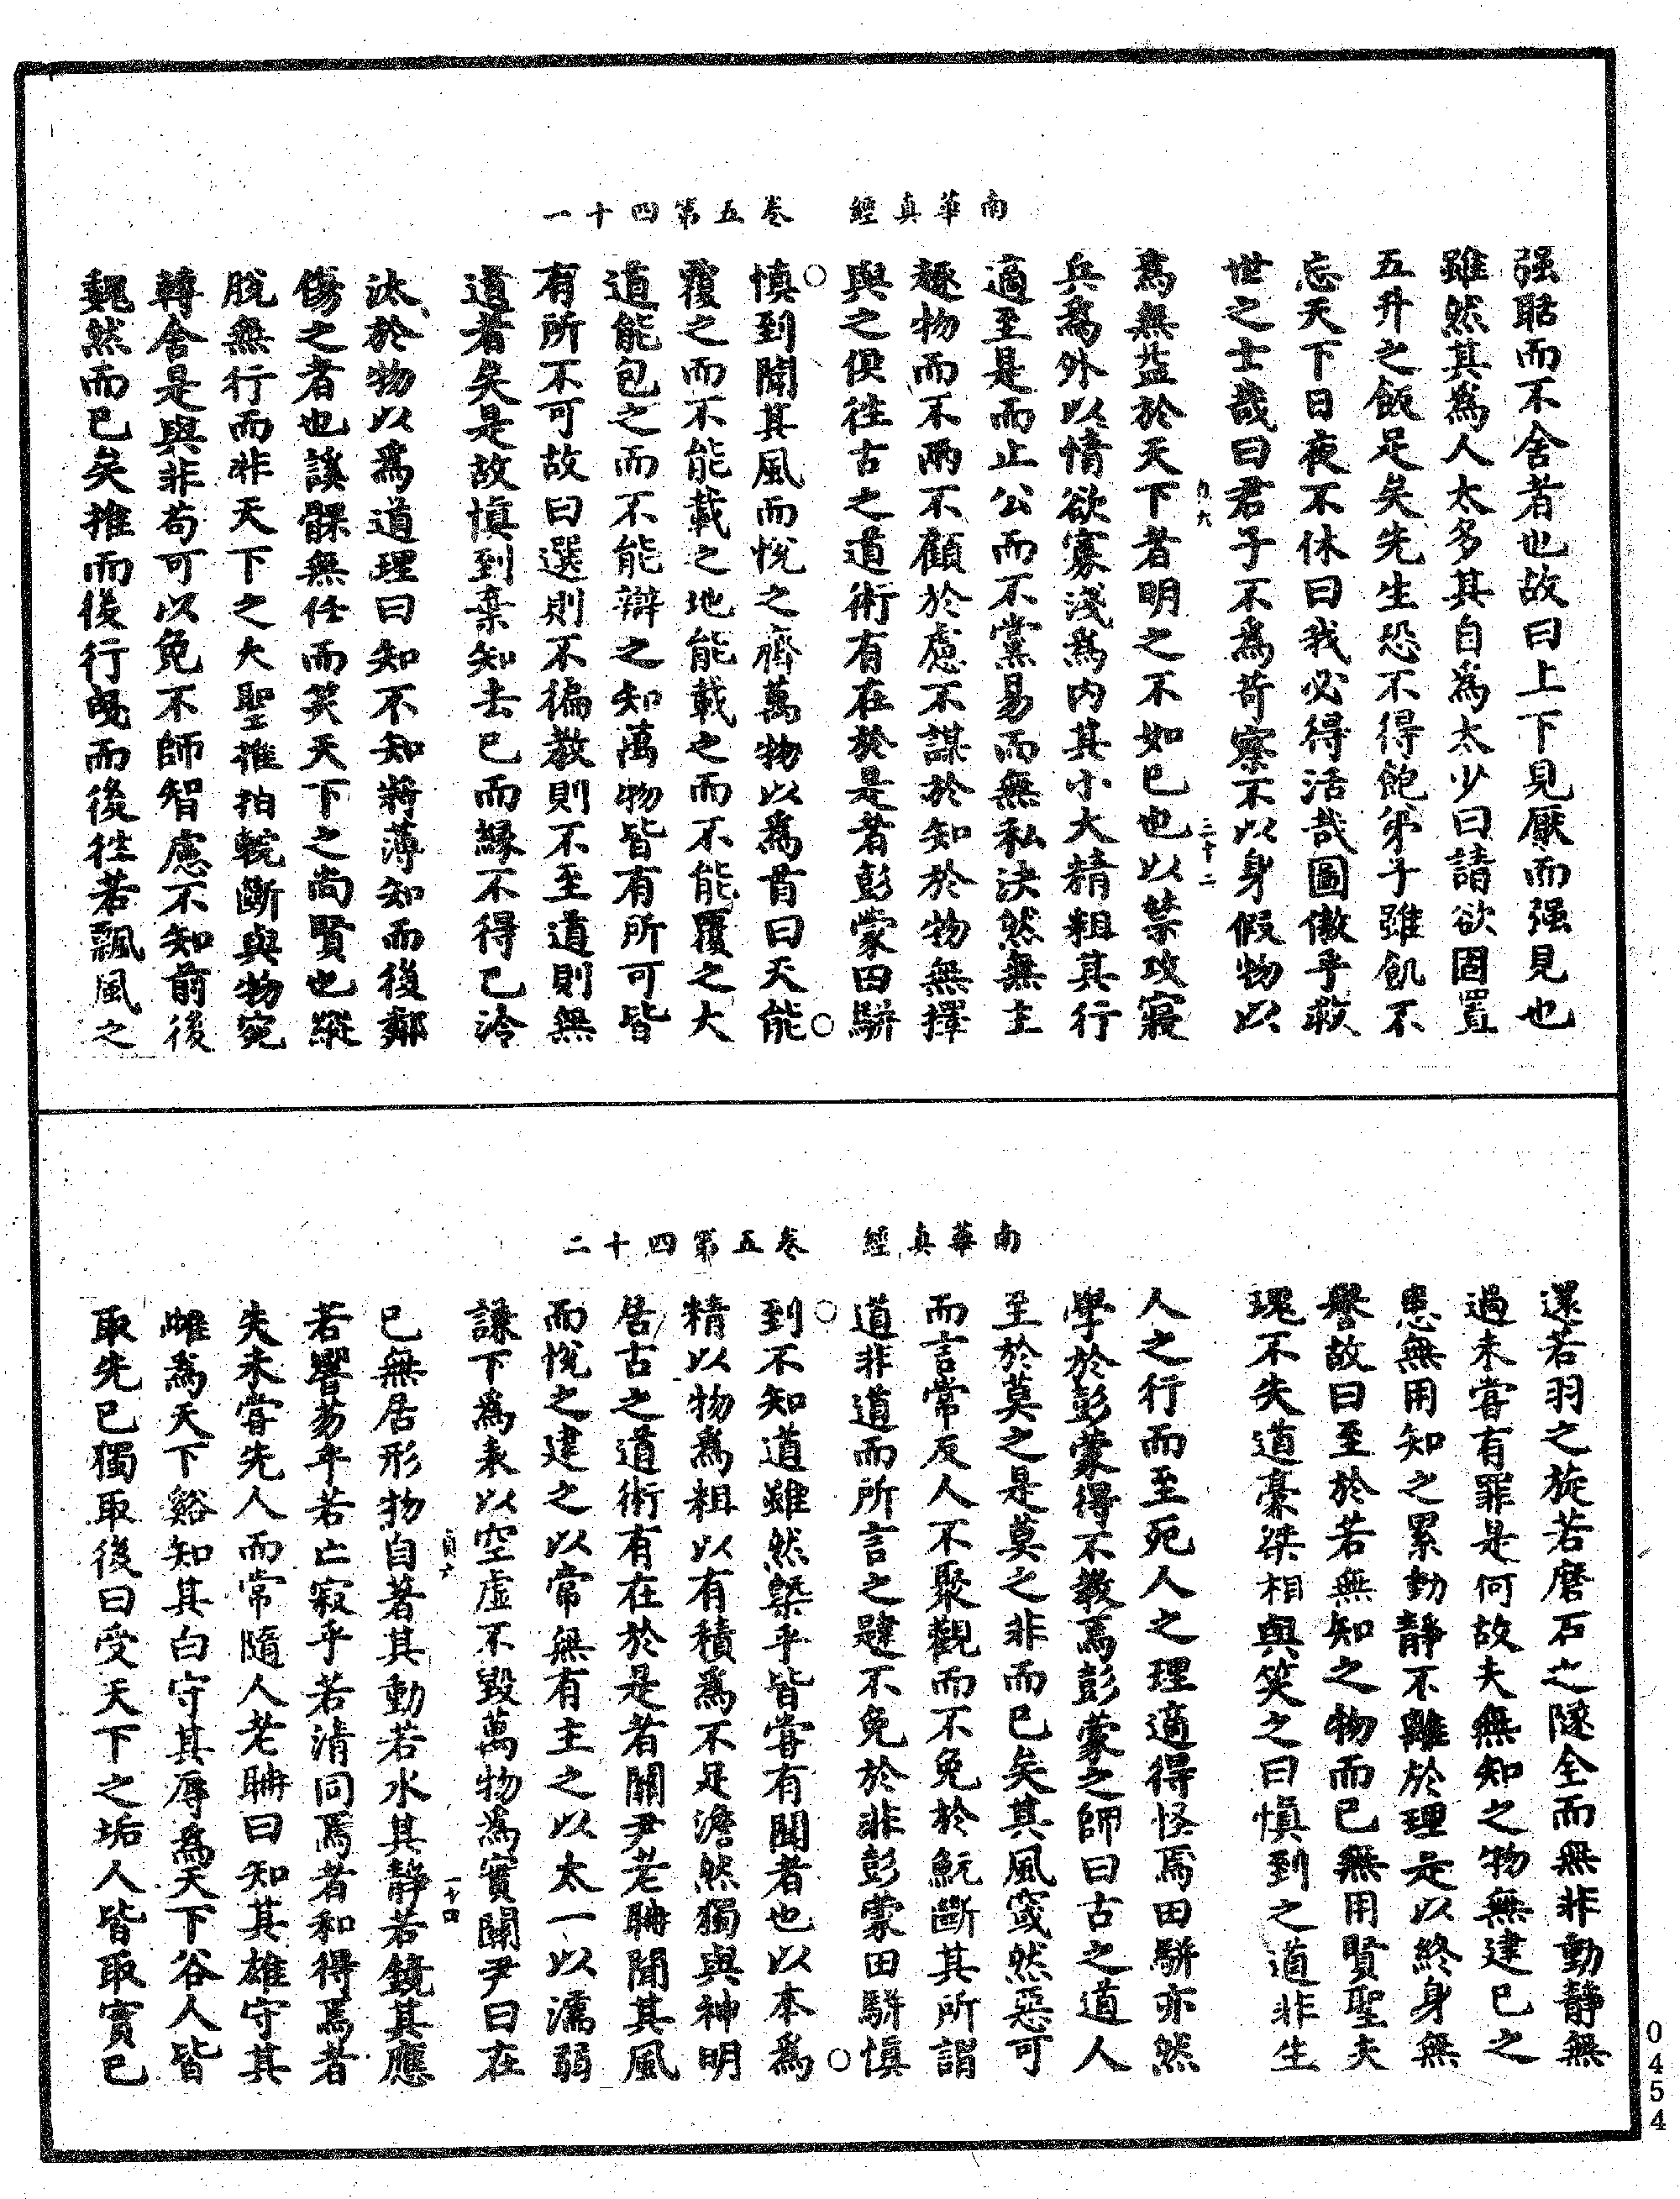 南華真經　卷五第四十一
强聒而不舍者也故曰上下見厭而强見也
雖然其為人太多其自為太少曰請欲固置
五升之飯足矣先生恐不得飽弟子雖飢不
忘天下日夜不休曰我必得活哉圖傲乎救
世之士哉曰君子不為苛察不以身假物以
為無益於天下者明之不如已也以禁攻寢
兵為外以情欲寡淺為内其小大精粗其行
適至是而止公而不黨易而無私決然無主
趣物而不兩不顧於慮不謀於知於物無擇
與之俱往古之道術有在於是者彭蒙田駢
慎到聞其風而悅之齊萬物以為首曰天能
覆之而不能載之地能載之而不能覆之大
道能包之而不能辯之知萬物皆有所可皆
有所不可故曰選則不徧教則不至道則無
遺者矣是故慎到棄知去已而緣不得已泠
汰於物以為道理曰知不知將薄知而後鄰
傷之者也謑髁無任而笑天下之尚賢也縱
脫無行而非天下之大聖推拍輐斷與物宛
轉舍是與非苟可以免不師智慮不知前後
魏然而已矣推而後行曳而後往若飄風之
南華真經　卷五第四十二
還若羽之旋若磨石之隧全而無非動靜無
過未嘗有罪是何故夫無知之物無建已之
患無用知之累動靜不離於理是以終身無
譽故曰至於若無知之物而已無用賢聖夫
瑰不失道豪桀相與笑之曰慎到之道非生
人之行而至死人之理適得怪焉田駢亦然
學於彭蒙得不教焉彭蒙之師曰古之道人
至於莫之是莫之非而已矣其風窢然惡可
而言常反人不聚觀而不免於魭斷其所謂
道非道而所言之韙不免於非彭蒙田駢慎
到不知道雖然槩乎皆嘗有聞者也以本為
精以物為粗以有積為不足澹然獨與神明
居古之道術有在於是者關尹老聃聞其風
而悅之建之以常無有主之以太一以濡弱
謙下為表以空虛不毀萬物為實關尹曰在
已無居形物自著其動若水其靜若鏡其應
若響芴乎若亡寂乎若清同焉者和得焉者
失未嘗先人而常隨人老聃曰知其雄守其
雌為天下谿知其白守其辱為天下谷人皆
取先已獨取後曰受天下之垢人皆取實已
0454